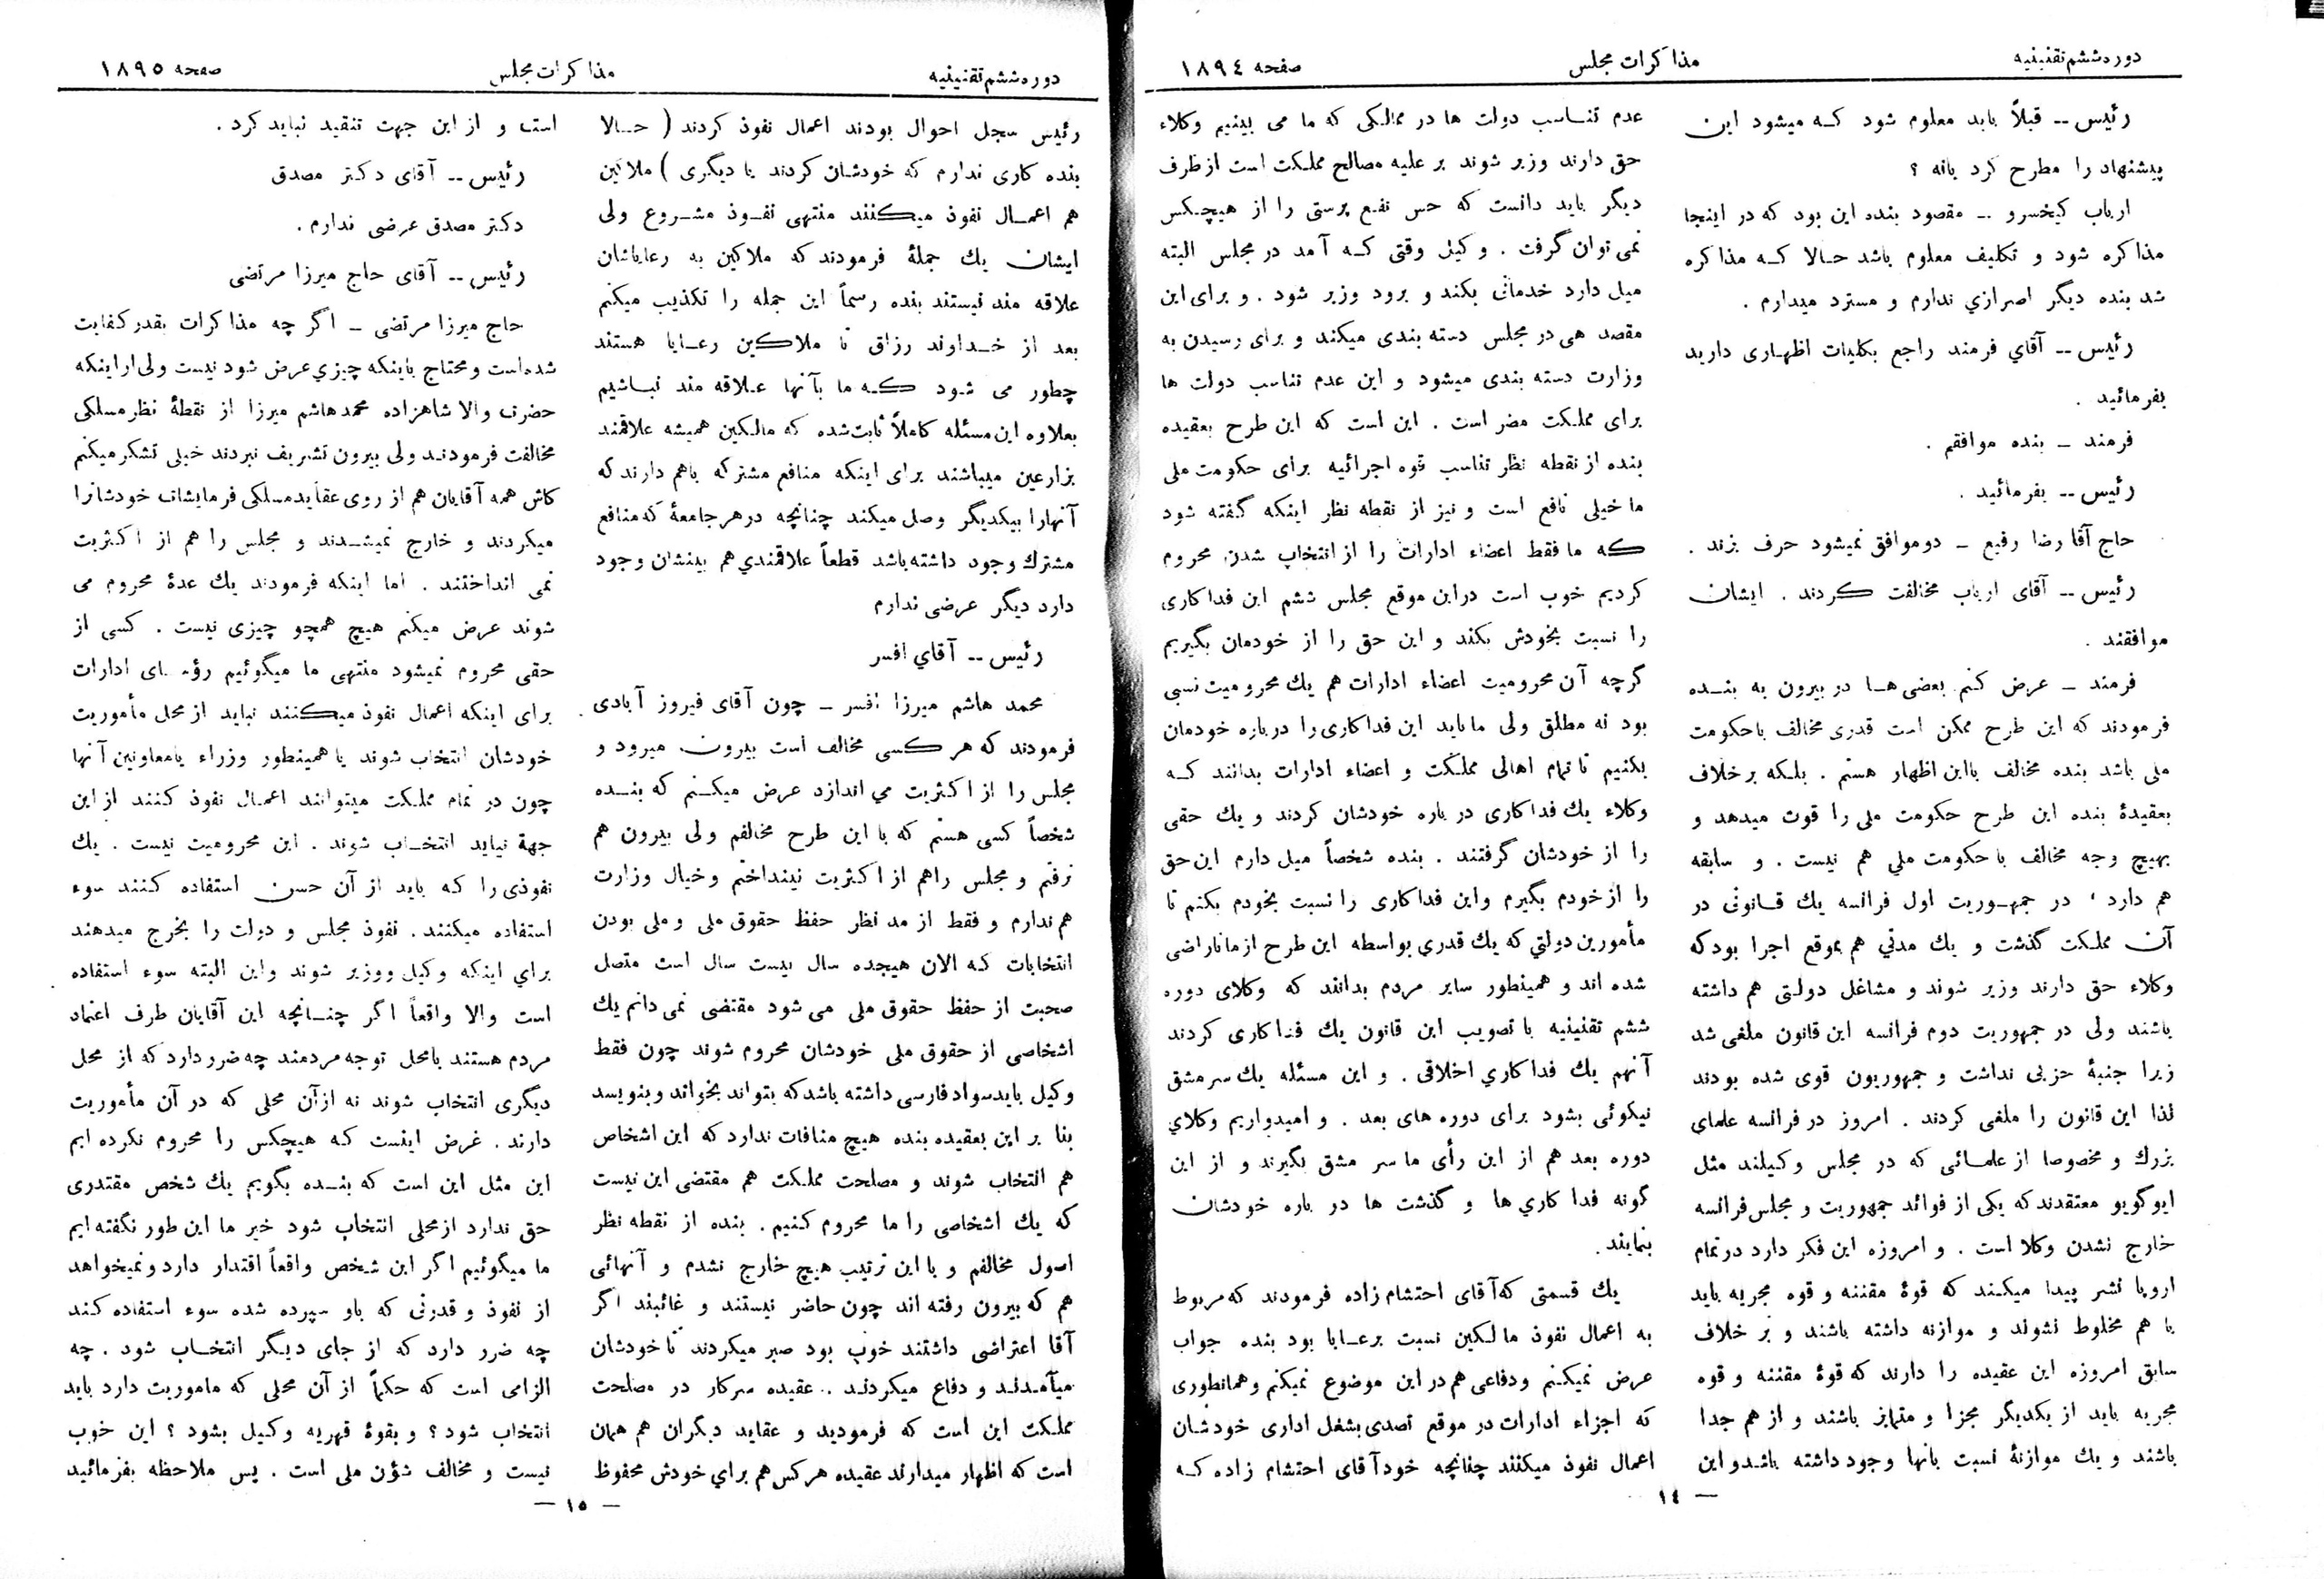 دوره ششم تقنینیه
مذاکرات مجلس
صفحه ١٨٩٤
رئیس -- قبلاً باید معلوم شود که میشود این
پیشنهاد را مطرح کرد یانه ؟
ارباب کیخسرو -- مقصود بنده این بود که در اینجا
مذاکره شود و تکلیف معلوم باشد حالا که مذاکره
شد بنده دیگر اصراری ندارم و مسترد میدارم .
رئیس -- آقای فرمند راجع بکلیات اظهاری دارید
بفرمائید .
فرمند ـ بنده موافقم .
رئیس -- بفرمائید .
حاج آقا رضا رفیع ـ دو موافق نمیشود حرف بزند .
رئیس -- آقای ارباب مخالفت کردند . ایشان
موافقند .
فرمند ـ عرض کنم بعضی ها در بیرون به بنده
فرمودند که این طرح ممکن است قدری مخالف باحکومت
ملی باشد بنده مخالف بااین اظهار هستم . بلکه برخلاف
بعقیدهٔ بنده این طرح حکومت ملی را قوت میدهد و
بهیچ وجه مخالف با حکومت ملی هم نیست . و سابقه
هم دارد ، در جمهوریت اول فرانسه یك قانونی در
آن مملکت گذشت و یك مدتی هم بموقع اجرا بود که
وکلاء حق دارند وزیر شوند و مشاغل دولتی هم داشته
باشند ولی در جمهوریت دوم فرانسه این قانون ملغی شد
زیرا جنبهٔ حزبی نداشت و جمهوریون قوی شده بودند
لذا این قانون را ملغی کردند . امروز در فرانسه علمای
بزرك و مخصوصا از علمائی که در مجلس وکیلند مثل
ایوگویو معتقدند که یکی از فوائد جمهوریت و مجلس فرانسه
خارج نشدن وکلا است . و امروزه این فکر دارد در تمام
اروپا نشر پیدا میکند که قوهٔ مقننه و قوه مجریه باید
با هم مخلوط نشوند و موازنه داشته باشند و بر خلاف
سابق امروزه این عقیده را دارند که قوهٔ مقننه و قوه
مجریه باید از یکدیگر مجزا و متمایز باشند و از هم جدا
باشند و یك موازنهٔ نسبت بانها وجود داشته باشد و این
عدم تناسب دولت ها در ممالکی که ما می بینیم وکلاء
حق دارند وزیر شوند بر علیه مصالح مملکت است از طرف
دیگر باید دانست که حس نفع پرستی را از هیچکس
نمی توان گرفت . وکیل وقتی که آمد در مجلس البته
میل دارد خدماتی بکند و برود وزیر شود . و برای این
مقصد هی در مجلس دسته بندی میکند و برای رسیدن به
وزارت دسته بندی میشود و این عدم تناسب دولت ها
برای مملکت مضر است . این است که این طرح بعقیده
بنده از نقطه نظر تناسب قوه اجرائیه برای حکومت ملی
ما خیلی نافع است و نیز از نقطه نظر اینکه گفته شود
که ما فقط اعضاء ادارات را از انتخاب شدن محروم
کردیم خوب است دراین موقع مجلس ششم این فداکاری
را نسبت بخودش بکند و این حق را از خودمان بگیریم
گرچه آن محرومیت اعضاء ادارات هم یك محرومیت نسبی
بود نه مطلق ولی ما باید این فداکاری را درباره خودمان
بکنیم تا تمام اهالی مملکت و اعضاء ادارات بدانند که
وکلاء یك فداکاری در باره خودشان کردند و یك حقی
را از خودشان گرفتند . بنده شخصاً میل دارم این حق
را از خودم بگیرم واین فداکاری را نسبت بخودم بکنم تا
مأمورین دولتی که یك قدری بواسطه این طرح از ما ناراضی
شده اند و همینطور سایر مردم بدانند که وکلای دوره
ششم تقنینیه با تصویب این قانون یك فداکاری کردند
آنهم یك فداکاری اخلاقی . و این مسئله یك سرمشق
نیکوئی بشود برای دوره های بعد . و امیدواریم وکلای
دوره بعد هم از این رأی ما سر مشق بگیرند و از این
گونه فدا کاری ها و گذشت ها در باره خودشان
بنمایند .
یك قسمتی که آقای احتشام زاده فرمودند که مربوط
به اعمال نفوذ مالکین نسبت برعایا بود بنده جواب
عرض نمیکنم ودفاعی هم در این موضوع نمیکنم وهمانطوری
که اجزاء ادارات در موقع تصدی بشغل اداری خودشان
اعمال نفوذ میکنند چنانچه خود آقای احتشام زاده که
١٤ —
دوره ششم تقنینیه
مذاکرات مجلس
صفحه ١٨٩٥
رئیس سجل احوال بودند اعمال نفوذ کردند ( حالا
بنده کاری ندارم که خودشان کردند یا دیگری ) ملاکین
هم اعمال نفوذ میکنند منتهی نفوذ مشروع ولی
ایشان یك جملهٔ فرمودند که ملاکین به رعایاشان
علاقه مند نیستند بنده رسماً این جمله را تکذیب میکنم
بعد از خداوند رزاق تا ملاکین رعایا هستند
چطور می شود که ما بآنها علاقه مند نباشیم
بعلاوه این مسئله کاملاً ثابت شده که مالکین همیشه علاقمند
بزارعین میباشند برای اینکه منافع مشترکه باهم دارند که
آنهارا بیکدیگر وصل میکند چنانچه در هر جامعهٔ که منافع
مشترك وجود داشته باشد قطعاً علاقمندی هم بینشان وجود
دارد دیگر عرضی ندارم
رئیس -- آقای افسر
محمد هاشم میرزا افسر ـ چون آقای فیروز آبادی
فرمودند که هر کسی مخالف است بیرون میرود و
مجلس را از اکثریت می اندازد عرض میکنم که بنده
شخصاً کسی هستم که با این طرح مخالفم ولی بیرون هم
نرفتم و مجلس راهم از اکثریت نینداختم وخیال وزارت
هم ندارم و فقط از مد نظر حفظ حقوق ملی و ملی بودن
انتخابات که الان هیجده سال بیست سال است متصل
صحبت از حفظ حقوق ملی می شود مقتضی نمی دانم یك
اشخاصی از حقوق ملی خودشان محروم شوند چون فقط
وکیل باید سواد فارسی داشته باشد که بتواند بخواند و بنویسد
بنا بر این بعقیده بنده هیچ منافات ندارد که این اشخاص
هم انتخاب شوند و مصلحت مملکت هم مقتضی این نیست
که یك اشخاصی را ما محروم کنیم . بنده از نقطه نظر
اصول مخالفم و با این ترتیب هیچ خارج نشدم و آنهائی
هم که بیرون رفته اند چون حاضر نیستند و غائبند اگر
آقا اعتراضی داشتند خوب بود صبر میکردند تا خودشان
میآمدند و دفاع میکردند .. عقیده سرکار در مصلحت
مملکت این است که فرمودید و عقاید دیگران هم همان
است که اظهار میدارند عقیده هر کس هم برای خودش محفوظ
است و از این جهت تنقید نباید کرد .
رئیس -- آقای دکتر مصدق
دکتر مصدق عرضی ندارم .
رئیس -- آقای حاج میرزا مرتضی
حاج میرزا مرتضی ـ اگر چه مذاکرات بقدر کفایت
شده است و محتاج باینکه چیزی عرض شود نیست ولی از اینکه
حضرت والا شاهزاده محمد هاشم میرزا از نقطهٔ نظر مسلکی
مخالفت فرمودند ولی بیرون تشریف نبردند خیلی تشکر میکنم
کاش همه آقایان هم از روی عقاید مسلکی فرمایشات خودشانرا
میکردند و خارج نمیشدند و مجلس را هم از اکثریت
نمی انداختند . اما اینکه فرمودند یك عدهٔ محروم می
شوند عرض میکنم هیچ همچو چیزی نیست . کسی از
حقی محروم نمیشود منتهی ما میگوئیم رؤسای ادارات
برای اینکه اعمال نفوذ میکنند نباید از محل مأموریت
خودشان انتخاب شوند یا همینطور وزراء یامعاونین آنها
چون در تمام مملکت میتوانند اعمال نفوذ کنند از این
جهة نباید انتخاب شوند . این محرومیت نیست . یك
نفوذی را که باید از آن حسن استفاده کنند سوء
استفاده میکنند . نفوذ مجلس و دولت را بخرج میدهند
برای اینکه وکیل ووزیر شوند واین البته سوء استفاده
است والا واقعاً اگر چنانچه این آقایان طرف اعتماد
مردم هستند یامحل توجه مردمند چه ضرر دارد که از محل
دیگری انتخاب شوند نه ازآن محلی که در آن مأموریت
دارند . غرض اینست که هیچکس را محروم نکرده ایم
این مثل این است که بنده بگویم یك شخص مقتدری
حق ندارد از محلی انتخاب شود خیر ما این طور نگفته ایم
ما میگوئیم اگر این شخص واقعاً اقتدار دارد و نمیخواهد
از نفوذ و قدرتی که باو سپرده شده سوء استفاده کند
چه ضرر دارد که از جای دیگر انتخاب شود . چه
الزامی است که حکماً از آن محلی که ماموریت دارد باید
انتخاب شود ؟ و بقوهٔ قهریه وکیل بشود ؟ این خوب
نیست و مخالف شؤن ملی است . پس ملاحظه بفرمائید
— ١٥ —